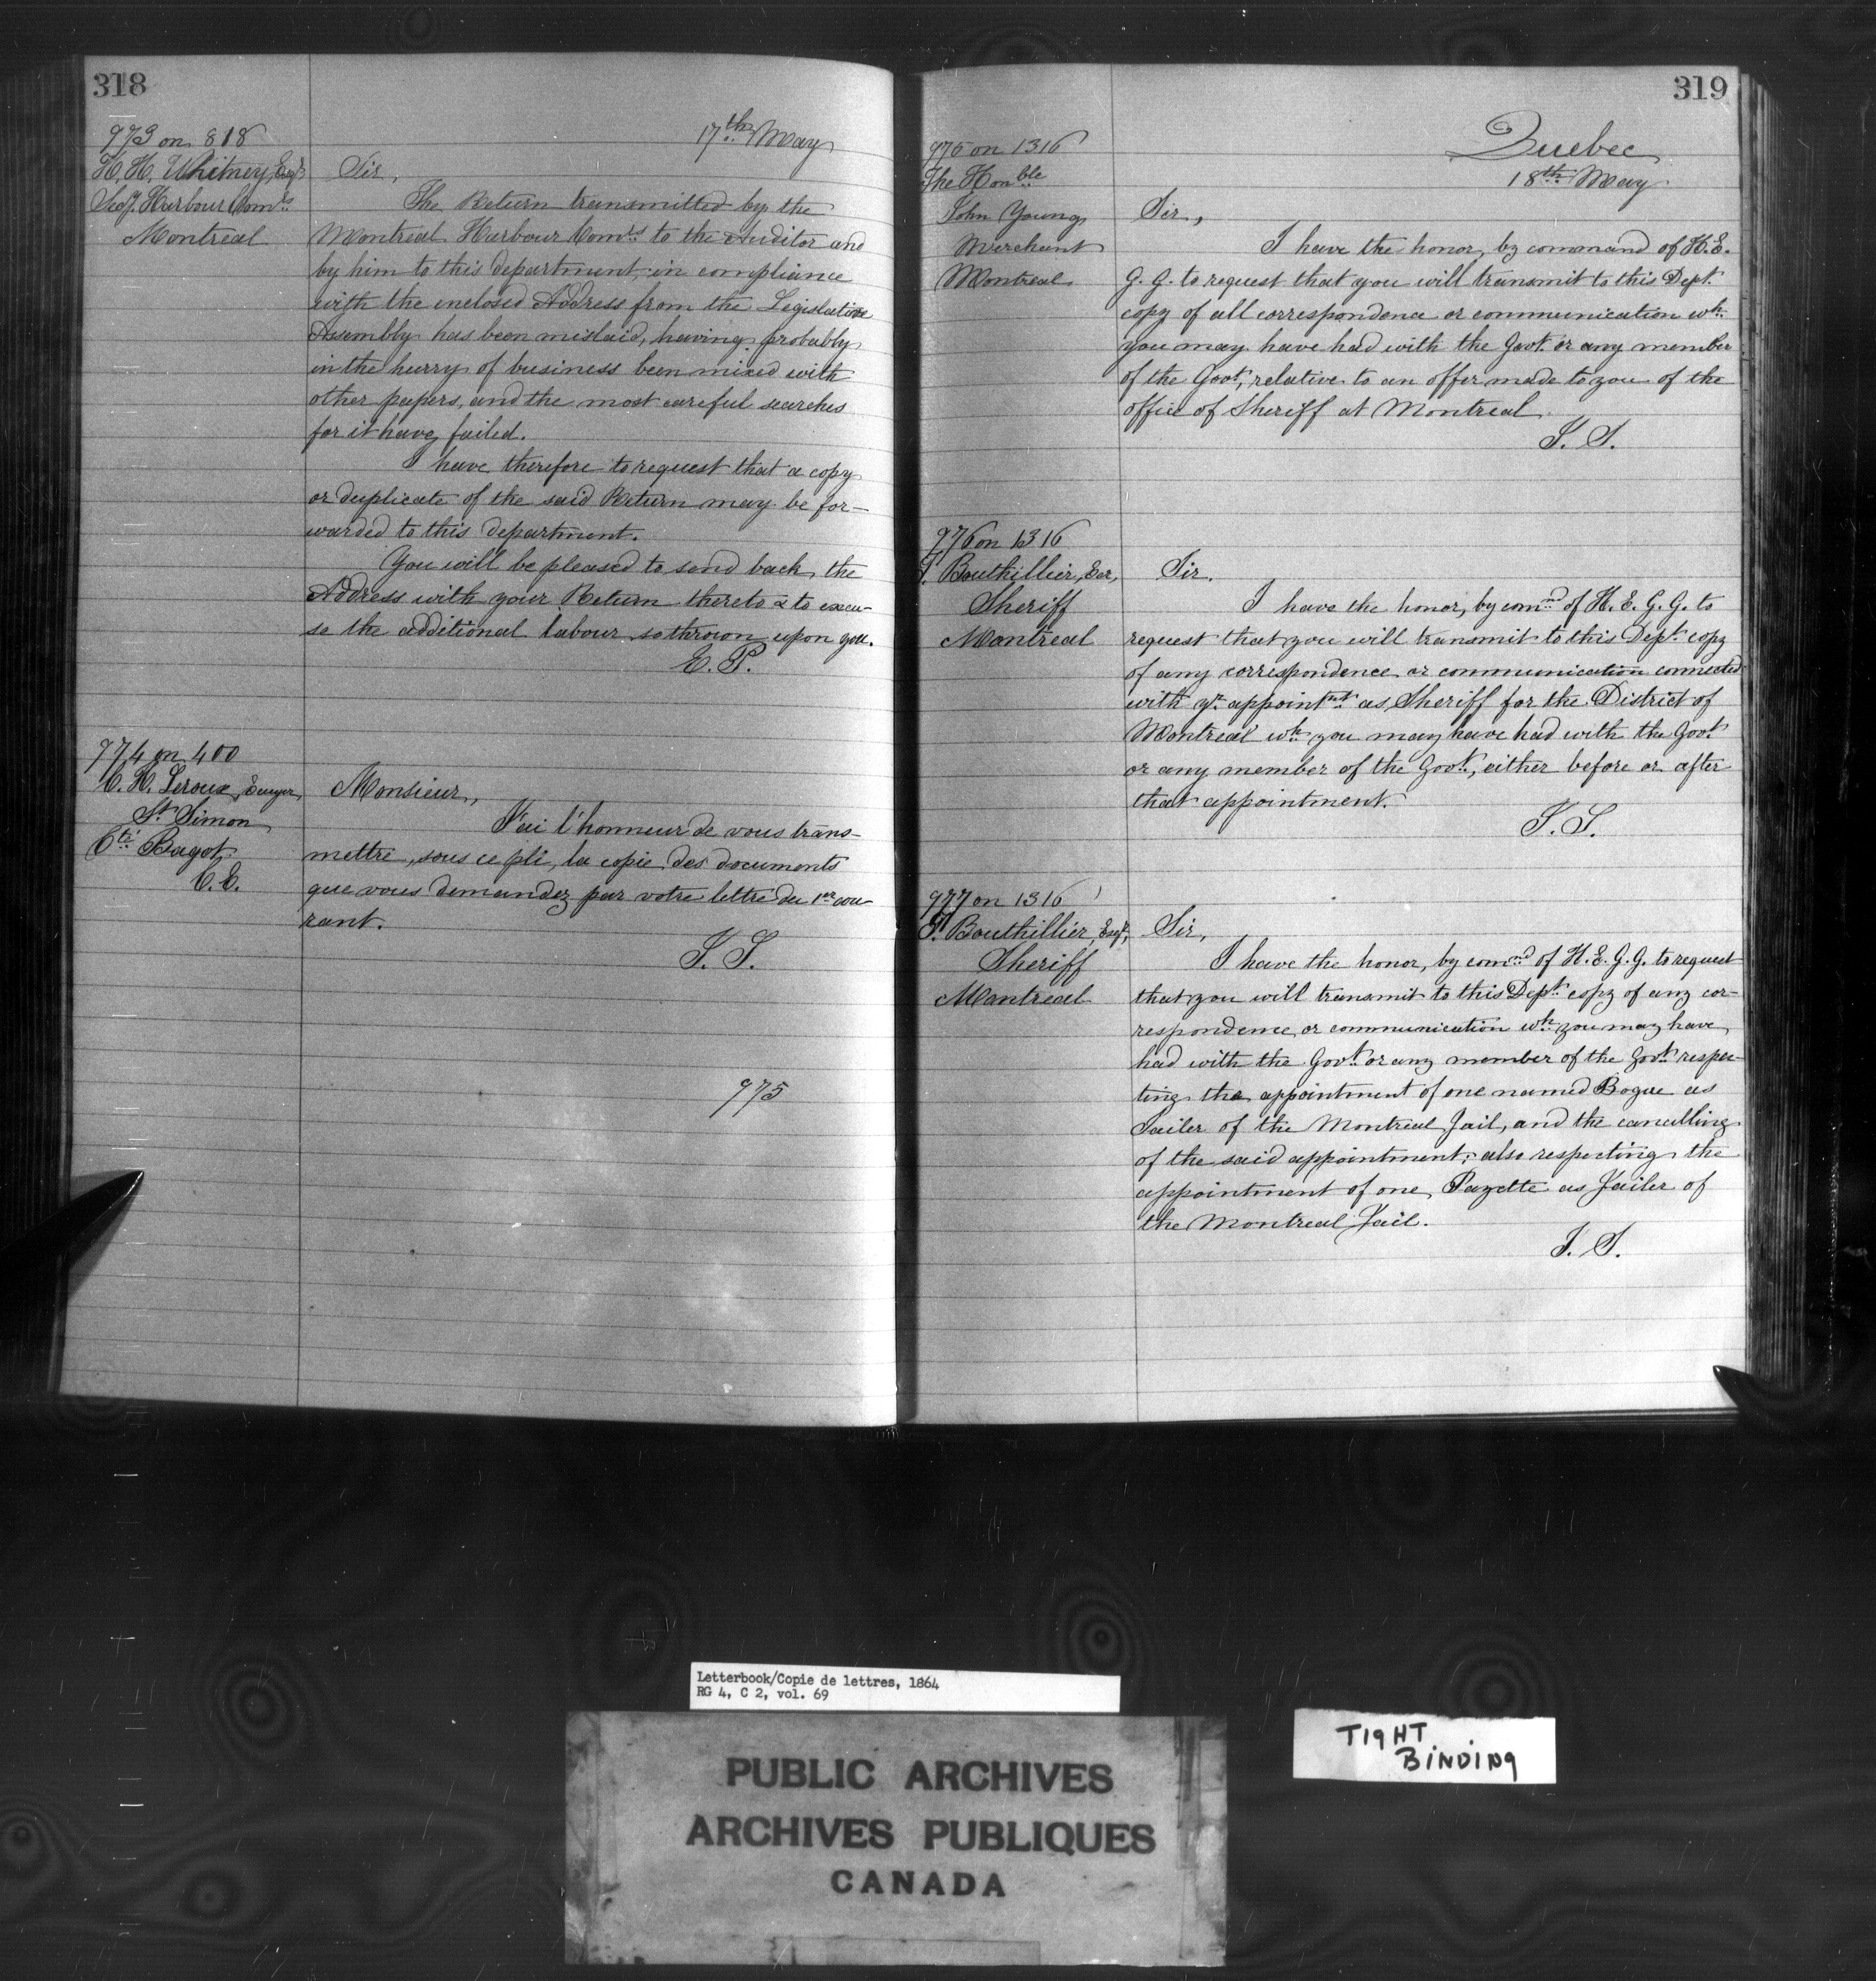 318
17th May
973 on 818
H. H. Whitney, Esqr
Secy. Harbour Comrs
Montreal
Sir,
The Return transmitted by the
Montreal Harbour Comrs to the Auditor and
by him to this department, in compliance
with the inclosed Address from the Legislative
Assembly has been mislaid, having probably
in the hurry of business been mixed with
other papers, and the most careful searches
for it have failed.
I have therefore to request that a copy
or duplicate of the said Return may be for-
warded to this department.
You will be pleased to send back the
Address with your Return thereto & to excu-
se the additional labour so thrown upon you.
E. P.
974 on 400
C. H. Leroux, Ecuyer,
St. Simon
Cté Bagot
C.E.
Monsieur,
J'ai l'honneur de vous trans-
mettre, sous ce pli, la copie des documents
que vous demandez par votre lettre du 1er cou-
rant.
J. S.
975
319
Quebec
18th May
975 on 1316
The Honble
John Young
Merchant
Montreal
Sir,
I have the honor, by command of H.E.
G. G. to request that you will transmit to this Dept.
copy of all correspondence or communication wh.
you may have had with the Govt. or any member
of the Govt, relative to an offer made to you of the
office of Sheriff at Montreal.
J. S.
976 on 1316
T. Bouthillier, Esr,
Sheriff
Montreal
Sir.
I have the honor, by comnd of H. E. G. G. to
request that you will transmit to this Dept. copy
of any correspondence or communication connected
with yr. appointmt. as Sheriff for the District of
Montreal wh. you may have had with the Govt.
or any member of the Govt., either before or after
that appointment.
J. S.
977 on 1316
T. Bouthillier, Esqr,
Sheriff
Montreal
Sir,
I have the honor, by comnd of H. E. G. G. to request
that you will transmit to this Dept. copy of any cor-
respondence or communication wh. you may have
had with the Govt. or any member of the Govt. respec-
ting the appointment of one named Bogue as
Jailer of the Montreal Jail, and the cancelling
of the said appointment; also respecting the
appointment of one Payette as Jailer of
the Montreal Jail.
J. S.
Letterbook/Copie de lettres, 1864
RG 4, C 2, vol. 69
PUBLIC ARCHIVES
ARCHIVES PUBLIQUES
CANADA
TIGHT
BINDING